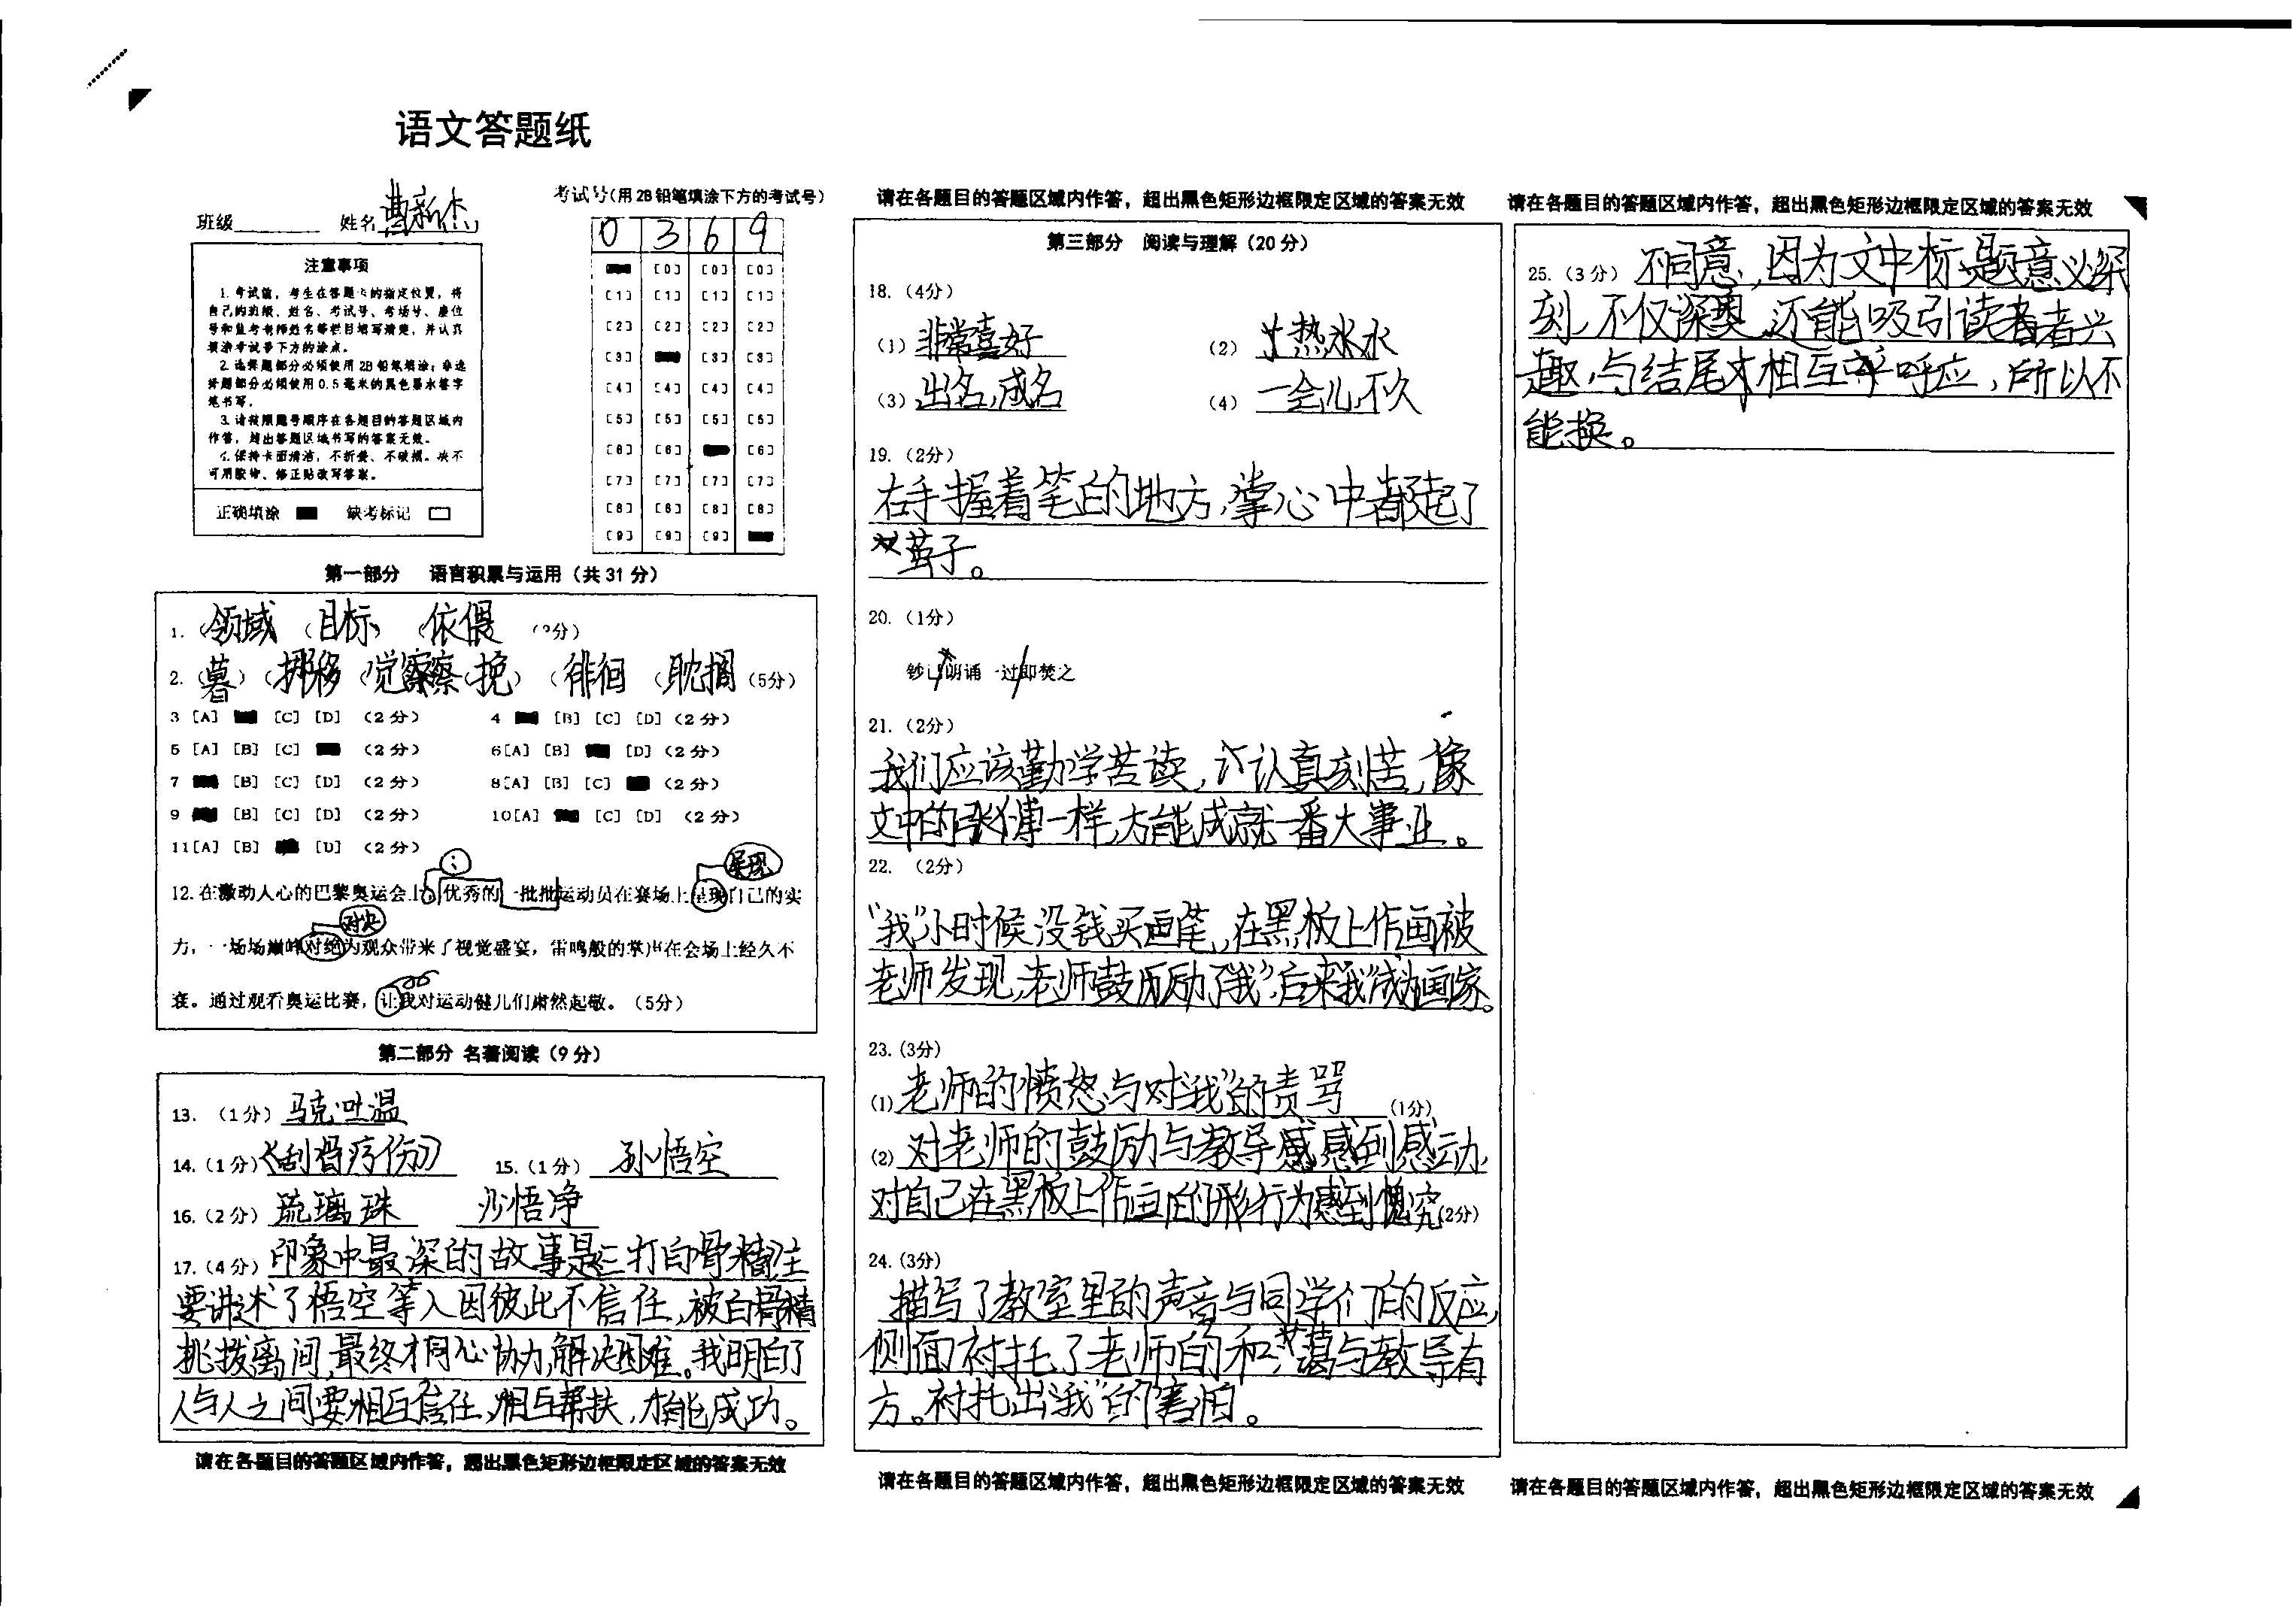 语文答题纸
班级 姓名 曹新杰
考试号(用2B铅笔填涂下方的考试号)
0 3 6 9
注意事项
1. 考试前，考生在答题卡的指定位置，将
自己的班级、姓名、考试号、考场号、座位
号和监考老师姓名等栏目填写清楚，并认真
填涂考试号下方的涂点。
2. 选择题部分必须使用2B铅笔填涂；非选
择题部分必须使用0.5毫米的黑色墨水签字
笔书写。
3. 请按照题号顺序在各题目的答题区域内
作答，超出答题区域书写的答案无效。
4. 保持卡面清洁，不折叠、不破损。决不
可用胶带、修正贴改写答案。
正确填涂 缺考标记
[0] [0] [0]
[1] [1] [1] [1]
[2] [2] [2] [2]
[3] [3] [3]
[4] [4] [4] [4]
[5] [5] [5] [5]
[6] [6] [6]
[7] [7] [7] [7]
[8] [8] [8] [8]
[9] [9] [9]
第一部分 语言积累与运用（共31分）
1. (领域 (目标) (依偎
2. (暮) (挪移 (觉察 (挽) (徘徊 (耽搁 (5分)
3 [A] [C] [D] (2分) 4 [B] [C] [D] (2分)
5 [A] [B] [C] (2分) 6 [A] [B] [D] (2分)
7 [B] [C] [D] (2分) 8 [A] [B] [C] (2分)
9 [B] [C] [D] (2分) 10 [A] [C] [D] (2分)
11 [A] [B] [D] (2分)
呈现
12. 在激动人心的巴黎奥运会上，优秀的一批批运动员在赛场上呈现自己的实
对决
力，一场场巅峰对绝为观众带来了视觉盛宴，雷鸣般的掌声在会场上经久不
衰。通过观看奥运比赛，让我对运动健儿们肃然起敬。（5分）
第二部分 名著阅读（9分）
13. （1分）马克·吐温
14. (1分)《刮骨疗伤》 15. (1分) 孙悟空
16. (2分) 琉璃珠 沙悟净
17. (4分) 印象中最深的故事是三打白骨精,主
要讲述了悟空等人因彼此不信任,被白骨精
挑拨离间,最终才同心协力,解决困难。我明白了
人与人之间要相互信任,相互帮扶,才能成功。
请在各题目的答题区域内作答，超出黑色矩形边框限定区域的答案无效
请在各题目的答题区域内作答，超出黑色矩形边框限定区域的答案无效
第三部分 阅读与理解（20分）
18. （4分）
(1) 非常喜好 (2) 热水
(3) 出名,成名 (4) 一会儿,不久
19. （2分）
右手握着笔的地方,掌心中都起了
茧子。
20. （1分）
钞已朗诵一过即焚之
21. （2分）
我们应该勤学苦读,认真刻苦,像
文中的张溥一样,方能成就一番大事业。
22. （2分）
“我”小时候没钱买画笔,在黑板上作画被
老师发现,老师鼓励了“我”,后来“我”成为画家。
23. (3分)
(1) 老师的愤怒与对“我”的责骂 (1分)
(2) 对老师的鼓励与教导感到感动,
对自己在黑板上作画的行为感到愧疚(2分)
24. (3分)
描写了教室里的声音与同学们的反应,
侧面衬托了老师的和蔼与教导有
方。衬托出“我”的害怕。
请在各题目的答题区域内作答，超出黑色矩形边框限定区域的答案无效
请在各题目的答题区域内作答，超出黑色矩形边框限定区域的答案无效
25. (3分) 不同意,因为文中标题意义深
刻,不仅深奥,还能吸引读者兴
趣,与结尾相互呼应,所以不
能换。
请在各题目的答题区域内作答，超出黑色矩形边框限定区域的答案无效